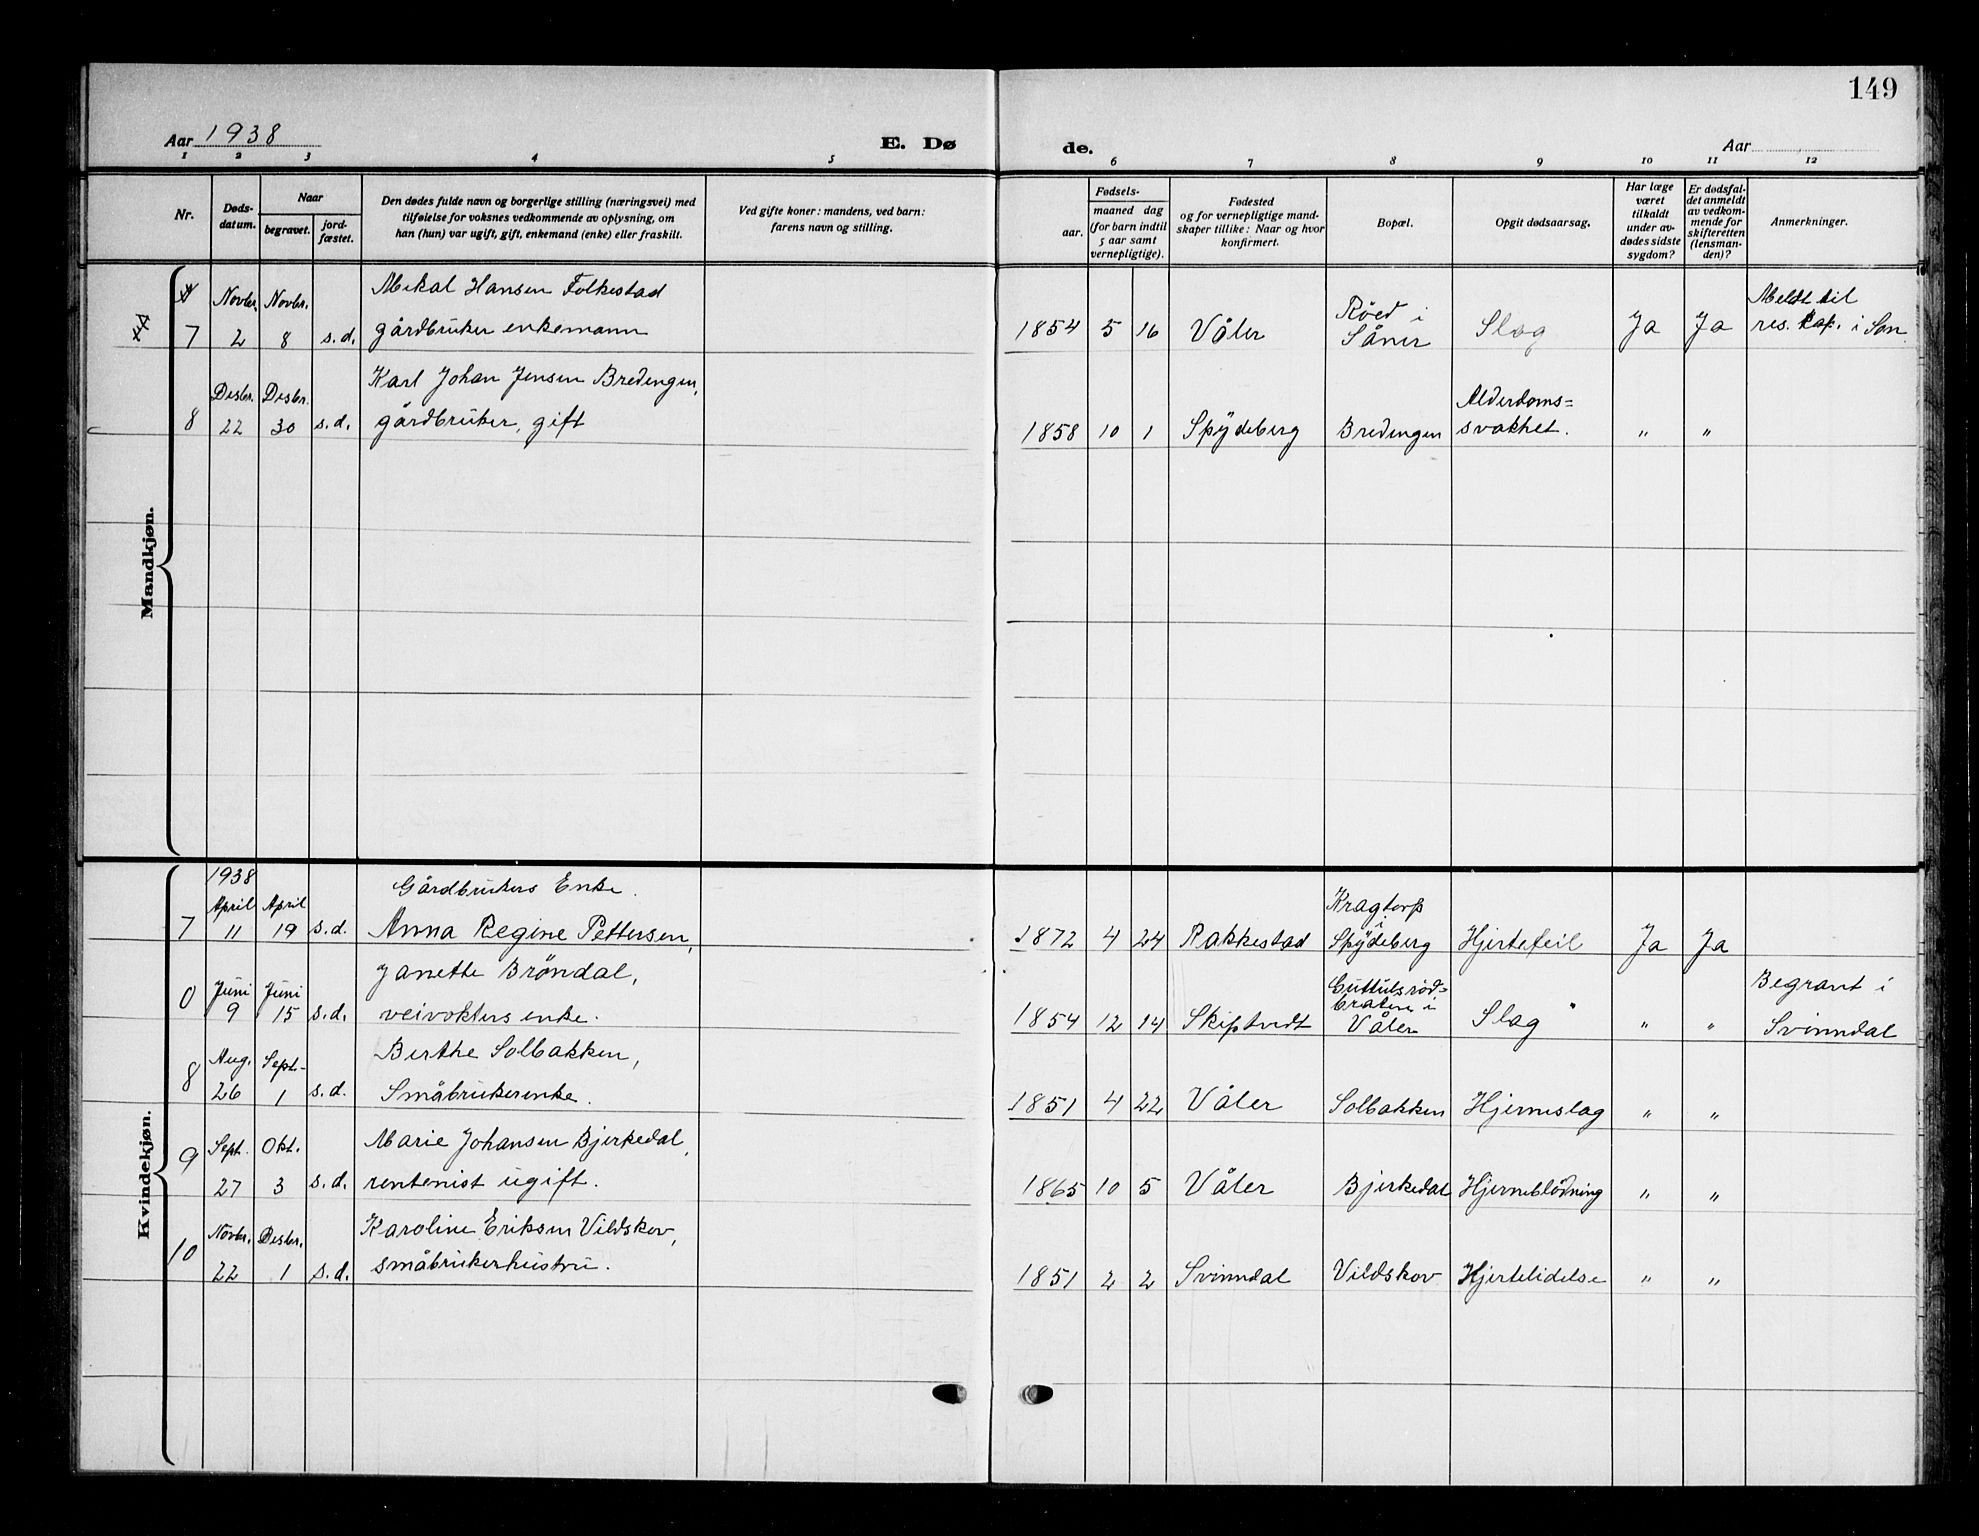 149
Aar 1938
E. Dø
de.
Aar
1 2 3 4 5
6 7 8 9 10 11 12
Nr.
Døds-
datum.
Naar
begravet.
jord-
fæstet.
Den dødes fulde navn og borgerlige stilling (næringsvei) med
tilføielse for voksnes vedkommende av oplysning, om
han (hun) var ugift, gift, enkemand (enke) eller fraskilt.
Ved gifte koner: mandens, ved barn:
farens navn og stilling.
aar.
Fødsels-
maaned dag
(for barn indtil
5 aar samt
vernepligtige).
Fødested
og for vernepligtige mand-
skaper tillike: Naar og hvor
konfirmert.
Bopæl.
Opgit dødsaarsag.
Har læge
været
tilkaldt
under av-
dødes sidste
sygdom?
Er dødsfal-
det anmeldt
av vedkom-
mende for
skifteretten
(lensman-
den)?
Anmerkninger.
Mandkjøn.
Novbr. Novbr. Mekal Hansen Folkestad Röed i Meldt til
7 2 8 s.d. gårdbruker enkemann 1854 5 16 Våler Såner Slag Ja Ja res. kap. i Son
Desbr. Desbr. Karl Johan Jensen Bredengen, Alderdoms=
8 22 30 s.d. gårdbruker, gift 1858 10 1 Spydeberg Bredengen svakhet. " "
Kvindekjøn.
1938
April April Gårdbrukers Enke. Kragtorp i
7 11 19 s.d. Anna Regine Pettersen, 1872 4 24 Rakkestad Spydeberg Hjertefeil Ja Ja
Juni Juni Janette Bröndal, Begravt i
0 9 15 s.d. veivokters enke. 1854 12 14 Skiptvedt Våler Slag " " Svinndal
Aug. Sept. Berthe Solbakken,
8 26 1 s.d. Småbrukerenke. 1851 4 22 Våler Solbakken Hjerneslag " "
Sept. Okt. Marie Johansen Bjerkedal,
9 27 3 s.d. rentenist ugift. 1865 10 5 Våler Bjerkedal Hjerneblödning " "
Novbr. Desbr. Karoline Eriksen Vildskov,
10 22 1 s.d. småbrukerhustru. 1851 2 2 Svinndal Vildskov Hjertelidelse " "